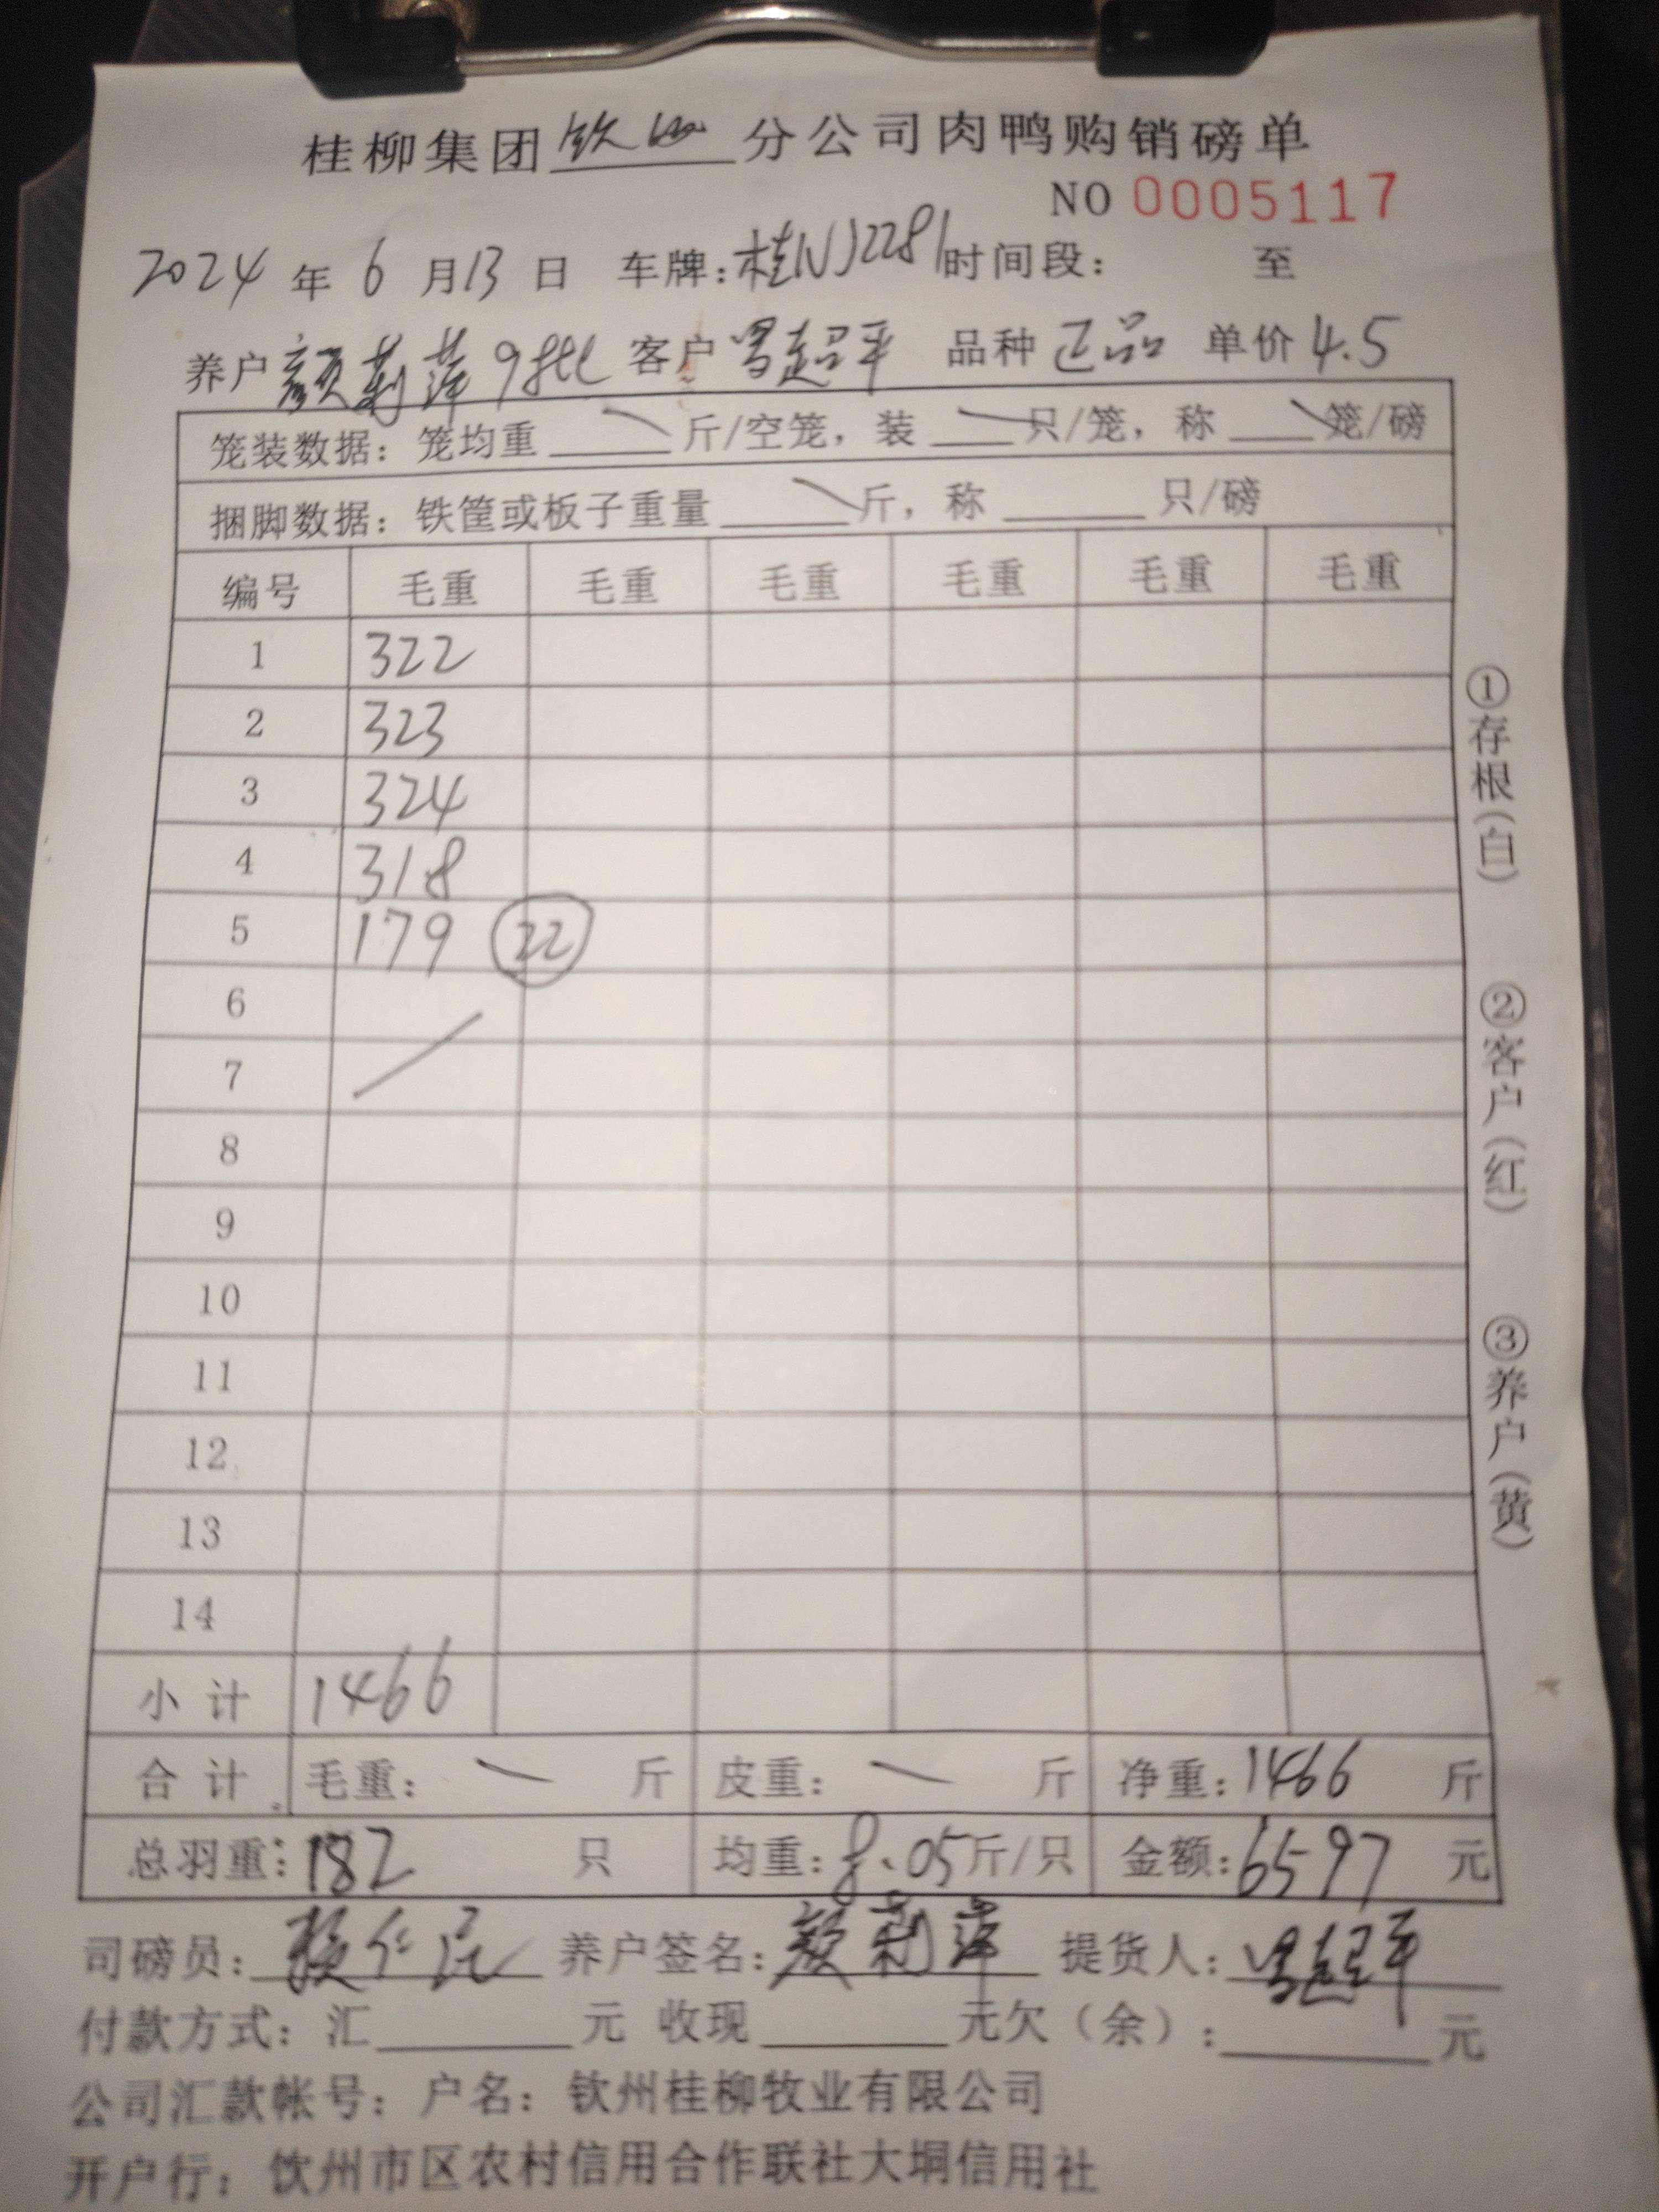 桂柳集团钦州分公司肉鸭购销磅单
NO 0005117
2024年6月13日 车牌:桂NJ2281时间段: 至
养户颜莉萍9批 客户曾超平 品种正品 单价4.5
笼装数据:笼均重 斤/空笼,装 只/笼,称 笼/磅
捆脚数据:铁筐或板子重量 斤,称 只/磅
编号 毛重 毛重 毛重 毛重 毛重 毛重
1 322
2 323
3 324
4 318
5 179 22
6
7
8
9
10
11
12
13
14
小计 1466
合计 毛重: 斤 皮重: 斤 净重:1466斤
总羽重:182只 均重:8.05斤/只 金额:6597元
司磅员: 养户签名:颜莉萍 提货人:曾超平
付款方式:汇 元 收现 元欠(余): 元
公司汇款帐号:户名:钦州桂柳牧业有限公司
开户行:钦州市区农村信用合作联社大垌信用社
①存根(白) ②客户(红) ③养户(黄)